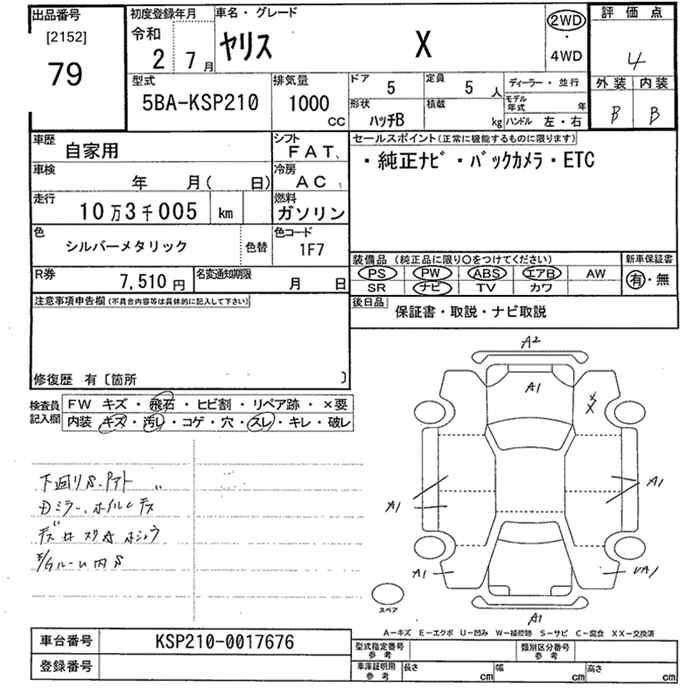 出品番号 初度登録年月 車名・グレード 評価点
[2152] 令和 ヤリス X 2WD・4WD 4
79 2年 7月
型式 排気量 ドア 5 定員 5人 ディーラー・並行 外装 内装
5BA-KSP210 1000cc 形状 ハッチB 積載 kg モデル年式 年 B B
ハンドル 左・右
車歴 自家用 シフト FAT
セールスポイント(正常に機能するものに限ります)
・純正ナビ・バックカメラ・ETC
車検 年 月( 日) 冷房 AC
走行 10万3千005 km 燃料 ガソリン
色 シルバーメタリック 色替 色コード 1F7
装備品(純正品に限り〇をつけてください) 新車保証書
R券 7,510円 名変通知期限 月 日
PS PW ABS エアB AW 有・無
SR ナビ TV カワ
注意事項申告欄(不具合内容等は具体的に記入して下さい)
後日品 保証書・取説・ナビ取説
修復歴 有〔箇所 〕
検査員記入欄 FW キズ・飛石・ヒビ割・リペア跡・×要
内装 キズ・汚レ・コゲ・穴・スレ・キレ・破レ
A2
A1
X
A1 A1
A1 UA1
A1
スペア
A-キズ E-エクボ U-凹み W-補修跡 S-サビ C-腐食 XX-交換済
車台番号 KSP210-0017676 型式指定番号 参考 類別区分番号 参考
登録番号 車庫証明用 参考 長さ cm 幅 cm 高さ cm